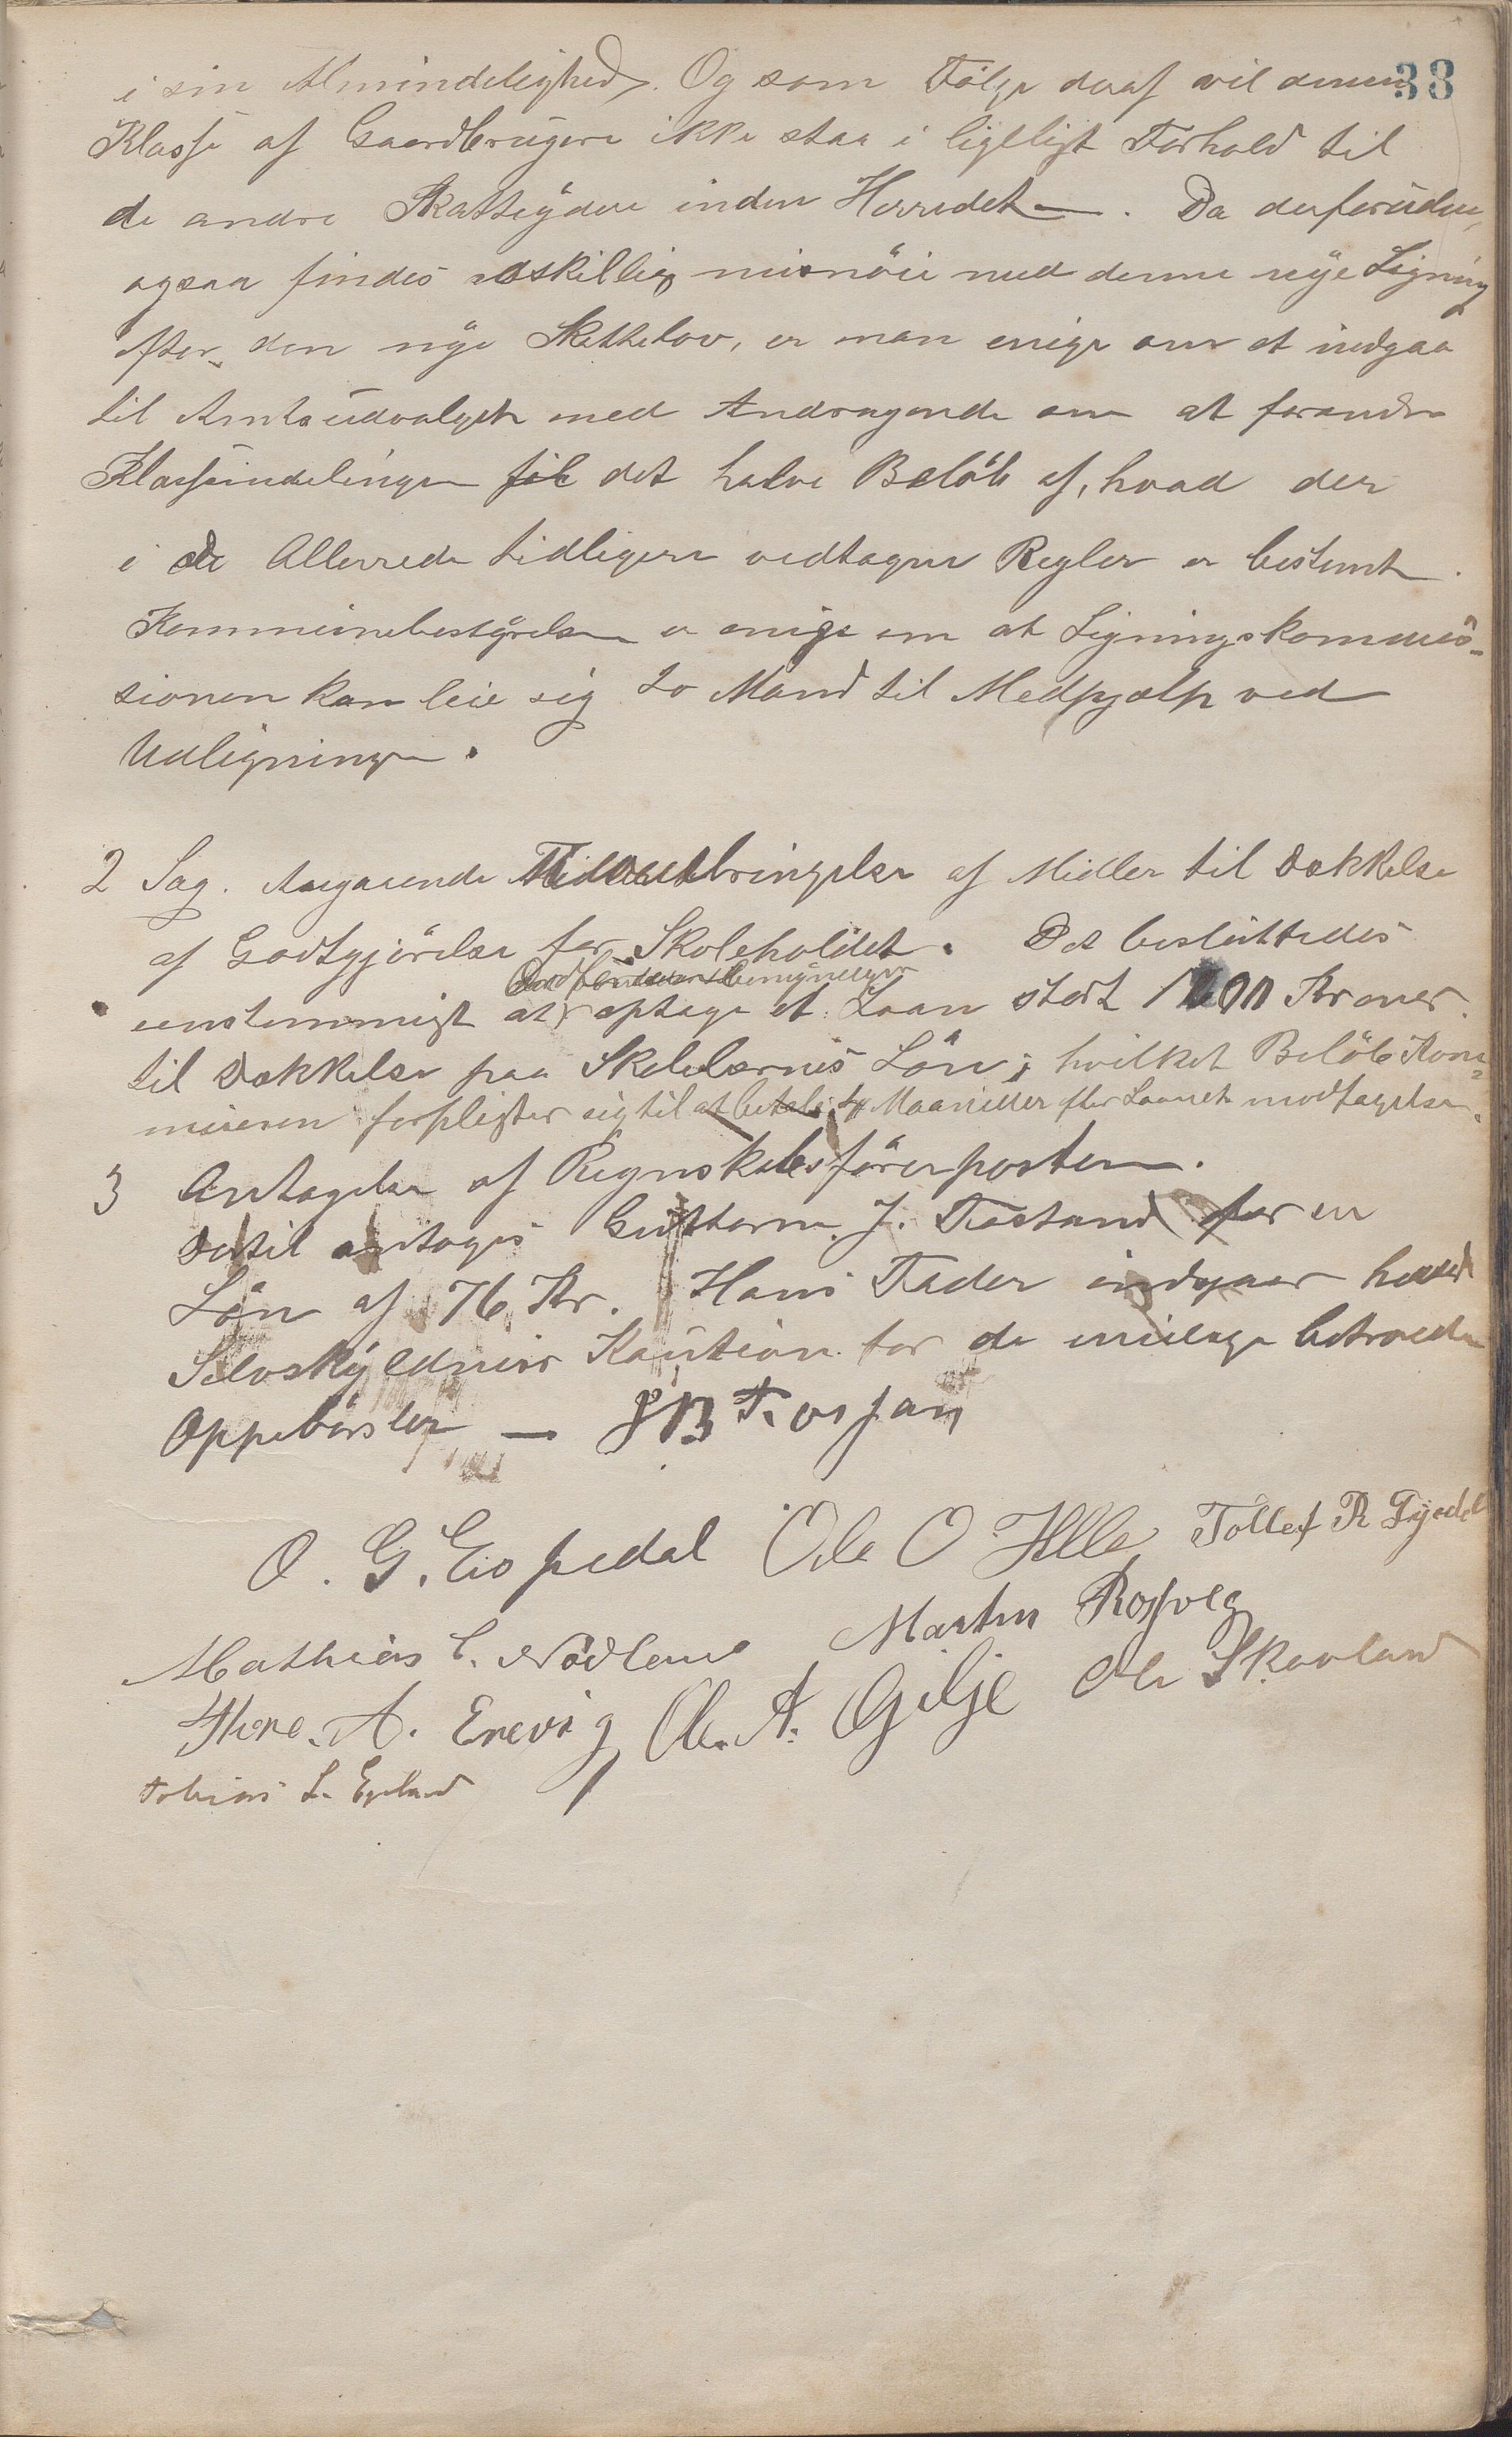 33
i sin Almindelighed. Og som Følge deraf vil denne
Klasse af Gaardbrugere ikke staa i ligeligt Forhold til
de andre Skatteydere inden Herredet. Da derforuden
ogsaa findes adskillig misnöie med denne nye Ligning
efter den nye Skattelov, er man enige om at indgaa
til Amtsudvalget med Andragende om at forandre
Klasseinddelingen til det halve Beløb af, hvad der
i de Allerrede tidligere vedtagne Regler er bestemt.
Kommunebestyrelsen er enige om at Ligningskommis-
sionen kan leie sig to Mand til Medhjælp ved
Udligningen.
2 Sag. Angaaende tilveiebringelse af Midler til Dækkelse
af Godtgjörelse for Skoleholdet. Det besluttedes
Ordföreren bemyndiges
eenstemmigt at optage et Laan stort Kroner
til Dækkelse paa Skolelærernes Lön; hvilket Belöb Kom=
munen forpligter sig til at betale 4 Maaneder efter Laanets modtagelse.
3 Antagelse af Regnskabsförerposten.
Dertil antoges Guttorm J. Tosland for en
Lön af 76 Kr. Hans Fader indgaar herved
Selvskyldner Kaution for de ham betroede
Oppebörsler —
O. G. Espedal Ole O Helle Tollef R Fjedel
Mathias E. Nödland Martin Rossvig
Thore. A. Erevig Ole. A. Gilje Ole Skavland
Tobias L. Eveland